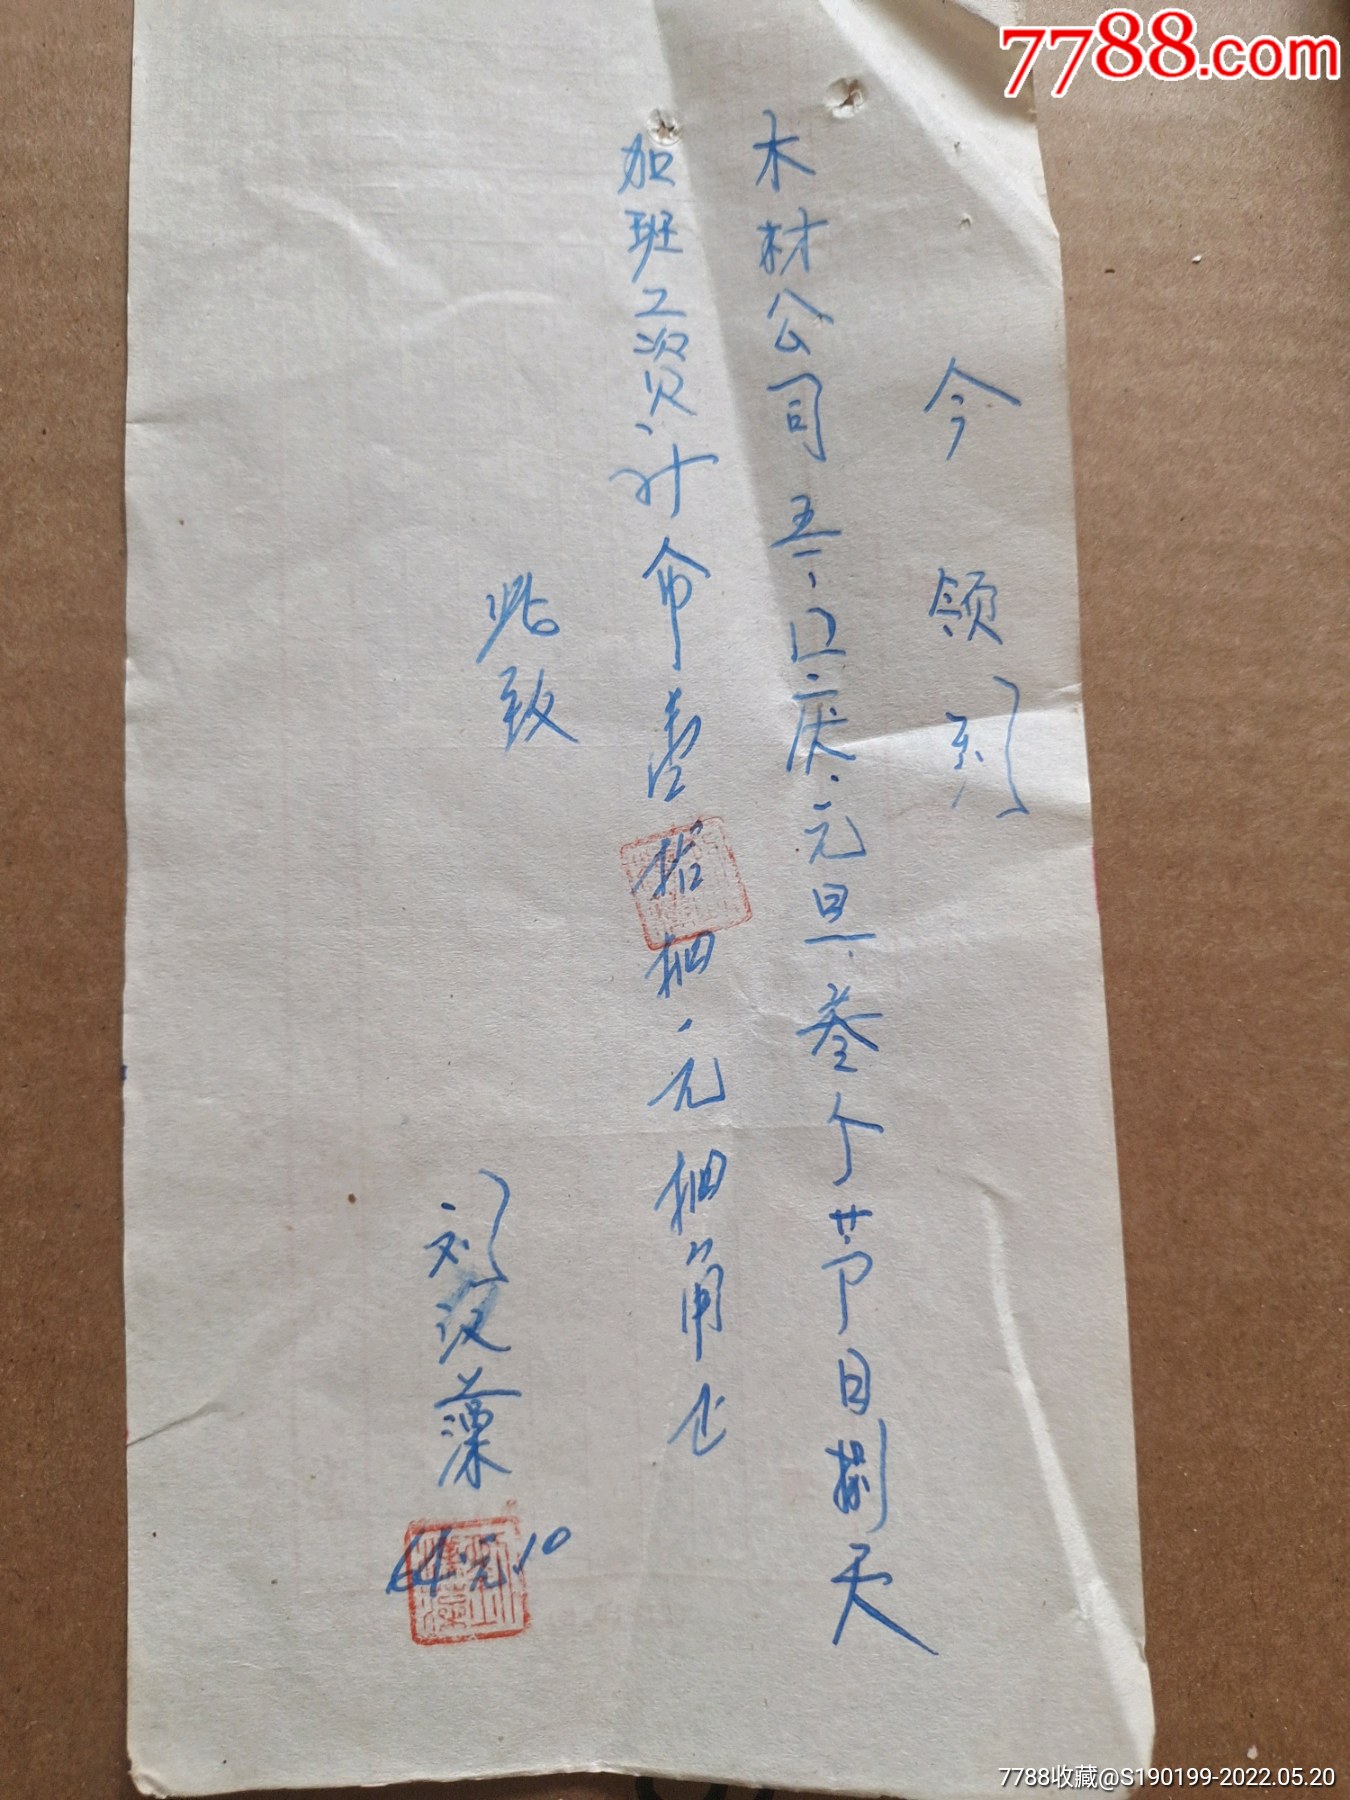 7788.com
今领到
木材公司五一、国庆、元旦、叁个节日捌天
加班工资、计币壹拾肆元肆角正
此致
刘汉藻
64.元.10
7788收藏@S190199-2022.05.20